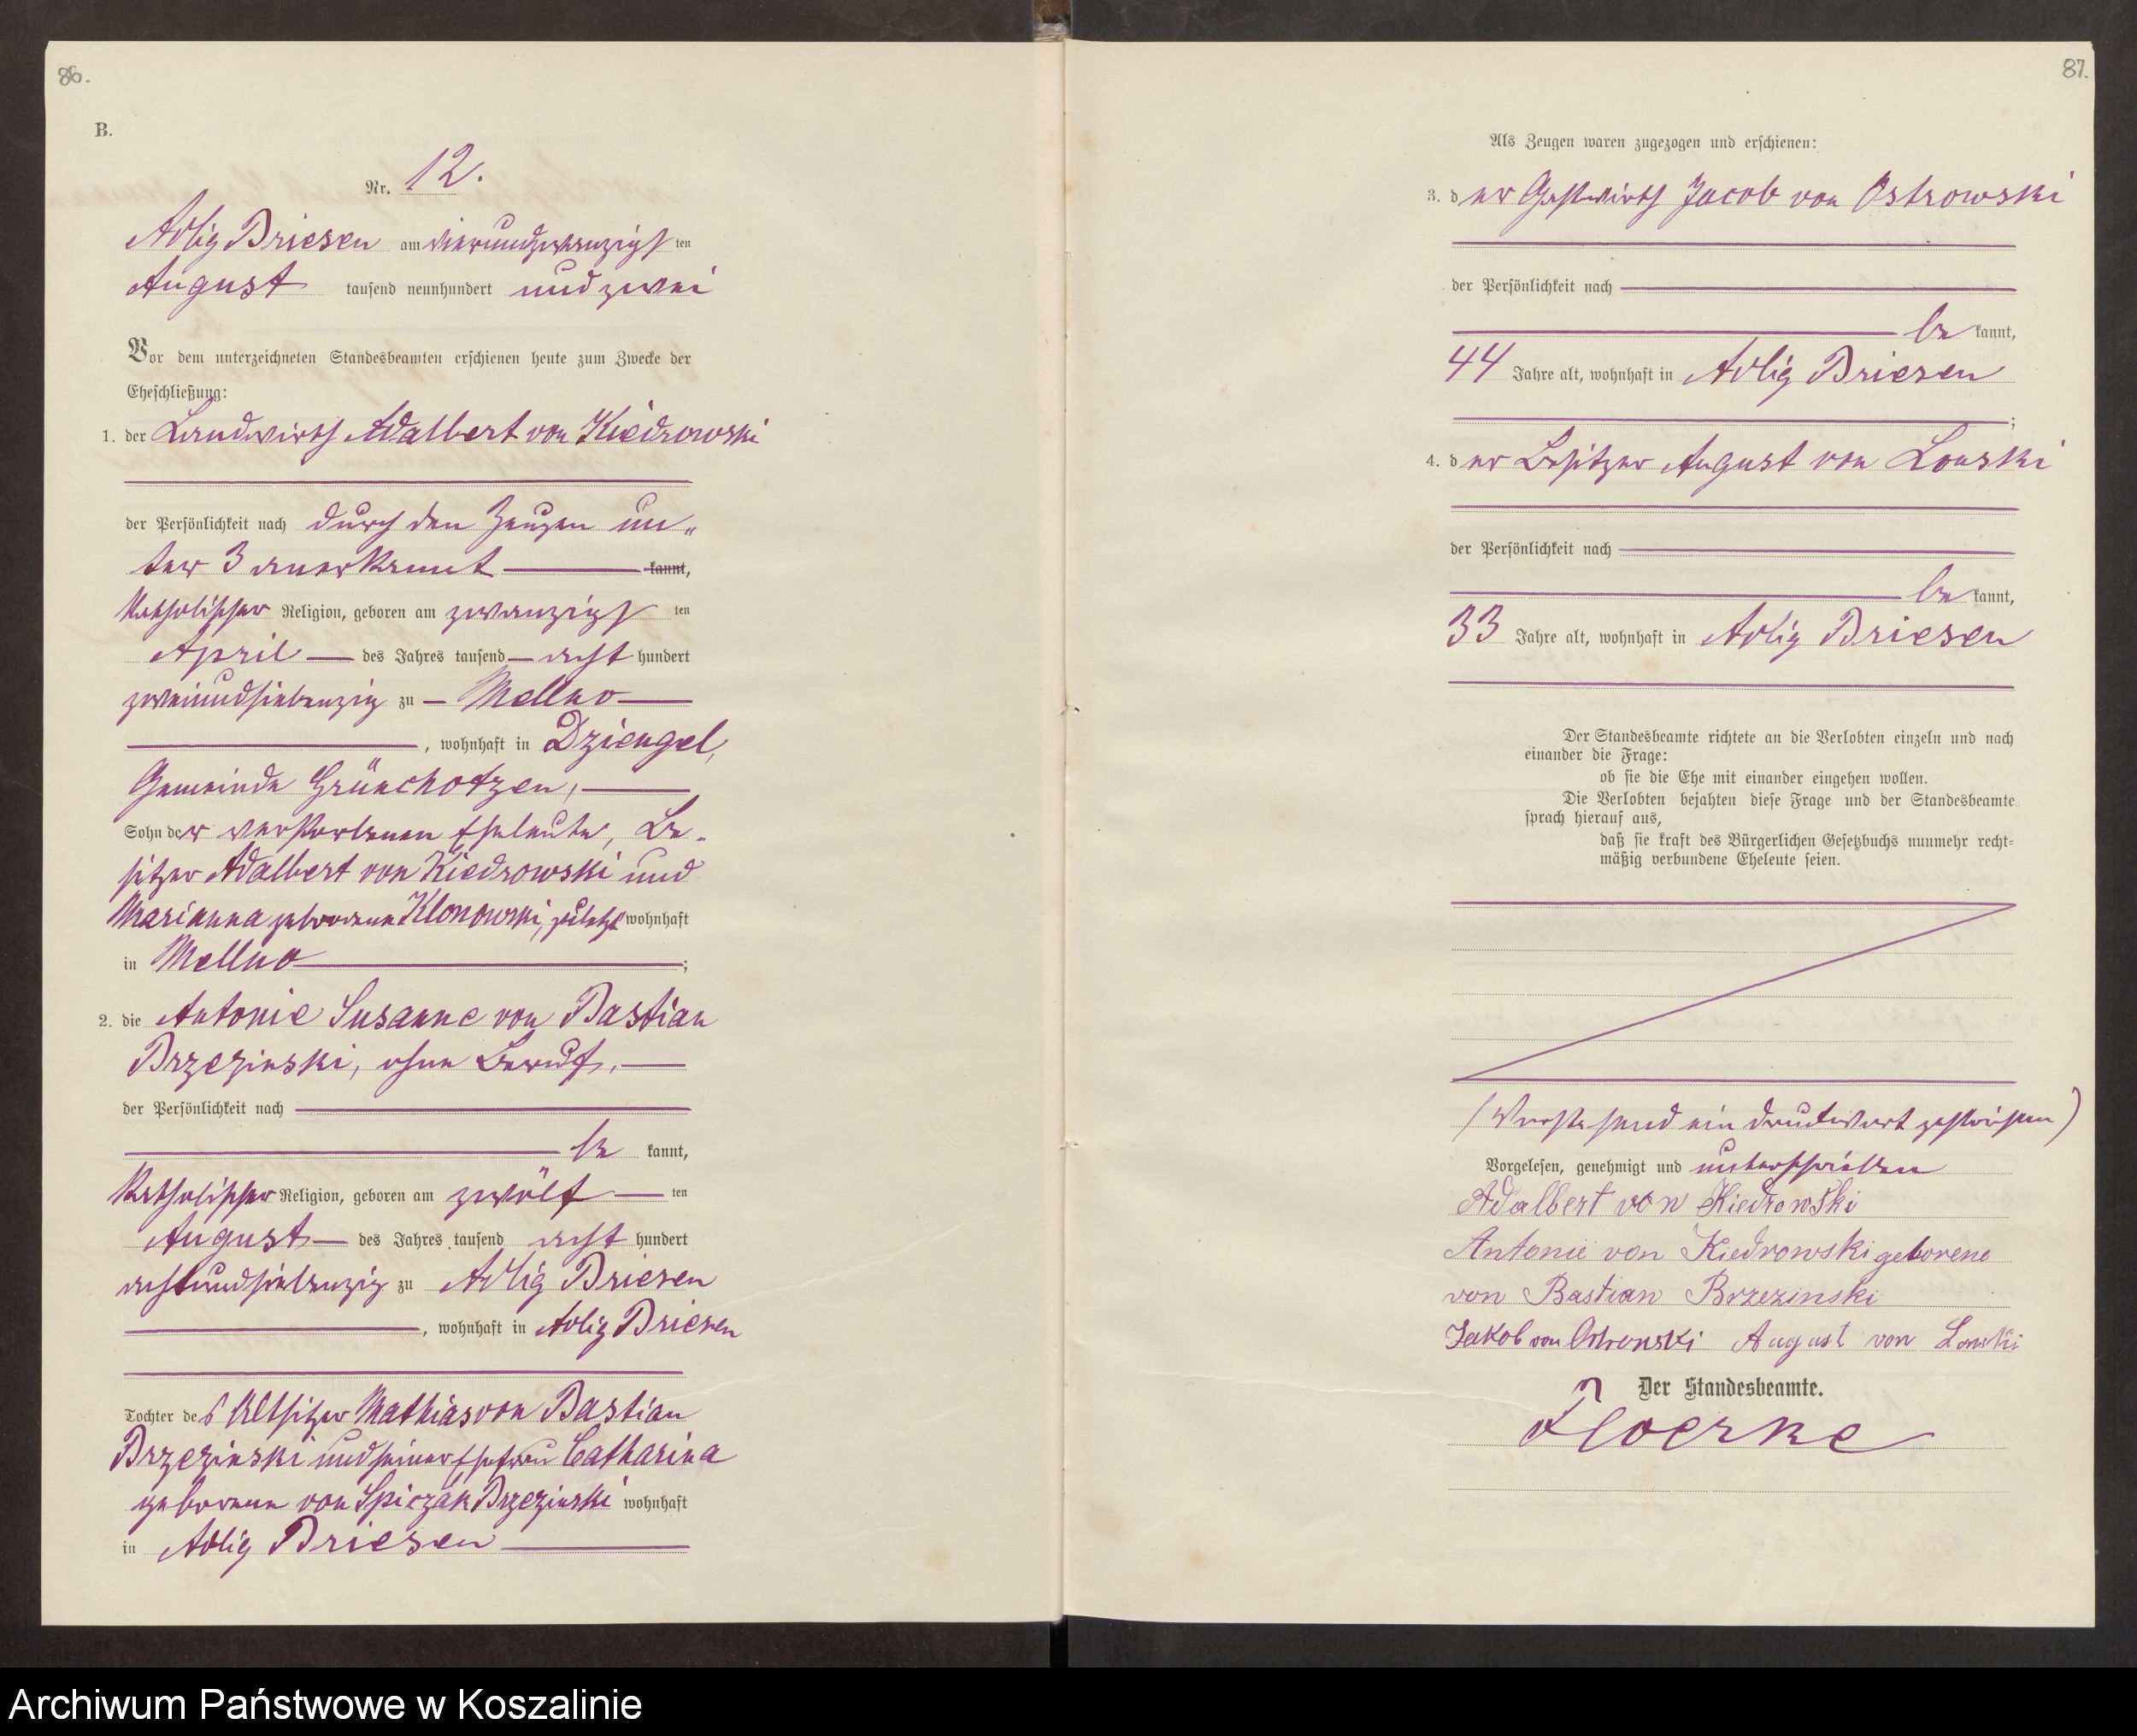 86.
B.
Nr. 12.
Adlig Briesen am vierundzwanzigsten
August tausend neunhundert und zwei
Vor dem unterzeichneten Standesbeamten erschienen heute zum Zwecke der
Eheschließung:
1. der Landwirth Adalbert von Kiedrowski
der Persönlichkeit nach durch den Zeugen un„
ter 3 anerkannt kannt,
katholischer Religion, geboren am zwanzigsten
April des Jahres tausend acht hundert
zweiundsiebenzig zu Mellno
, wohnhaft in Dziengel,
Gemeinde Grünchotzen,
Sohn der verstorbenen Eheleute, Be-
sitzer Adalbert von Kiedrowski und
Marianna geborenen Klonowski, zuletzt wohnhaft
in Mellno ;
2. die Antonie Susanne von Bastian
Brzezinski, ohne Beruf,
der Persönlichkeit nach
be kannt,
katholischer Religion, geboren am zwölf ten
August des Jahres tausend acht hundert
achtundsiebenzig zu Adlig Briesen
, wohnhaft in Adlig Briesen
Tochter des Altsitzer Mathias von Bastian
Brzezinski und seiner Ehefrau Catharina
geborenen von Spiczak Brzezinski wohnhaft
in Adlig Briesen
87.
Als Zeugen waren zugezogen und erschienen:
3. der Gastwirth Jacob von Ostrowski
der Persönlichkeit nach
be kannt,
44 Jahre alt, wohnhaft in Adlig Briesen
;
4. der Besitzer August von Lonski
der Persönlichkeit nach
be kannt,
33 Jahre alt, wohnhaft in Adlig Briesen
Der Standesbeamte richtete an die Verlobten einzeln und nach
einander die Frage:
ob sie die Ehe mit einander eingehen wollen.
Die Verlobten bejahten diese Frage und der Standesbeamte
sprach hierauf aus,
daß sie kraft des Bürgerlichen Gesetzbuchs nunmehr recht-
mäßig verbundene Eheleute seien.
(Vorstehend ein Druckwort gestrichen)
Vorgelesen, genehmigt und unterschrieben
Adalbert von Kiedrowski
Antonie von Kiedrowski geborene
von Bastian Brzezinski
Jakob von Ostrowski August von Lonski
Der Standesbeamte.
Floerke
Archiwum Państwowe w Koszalinie